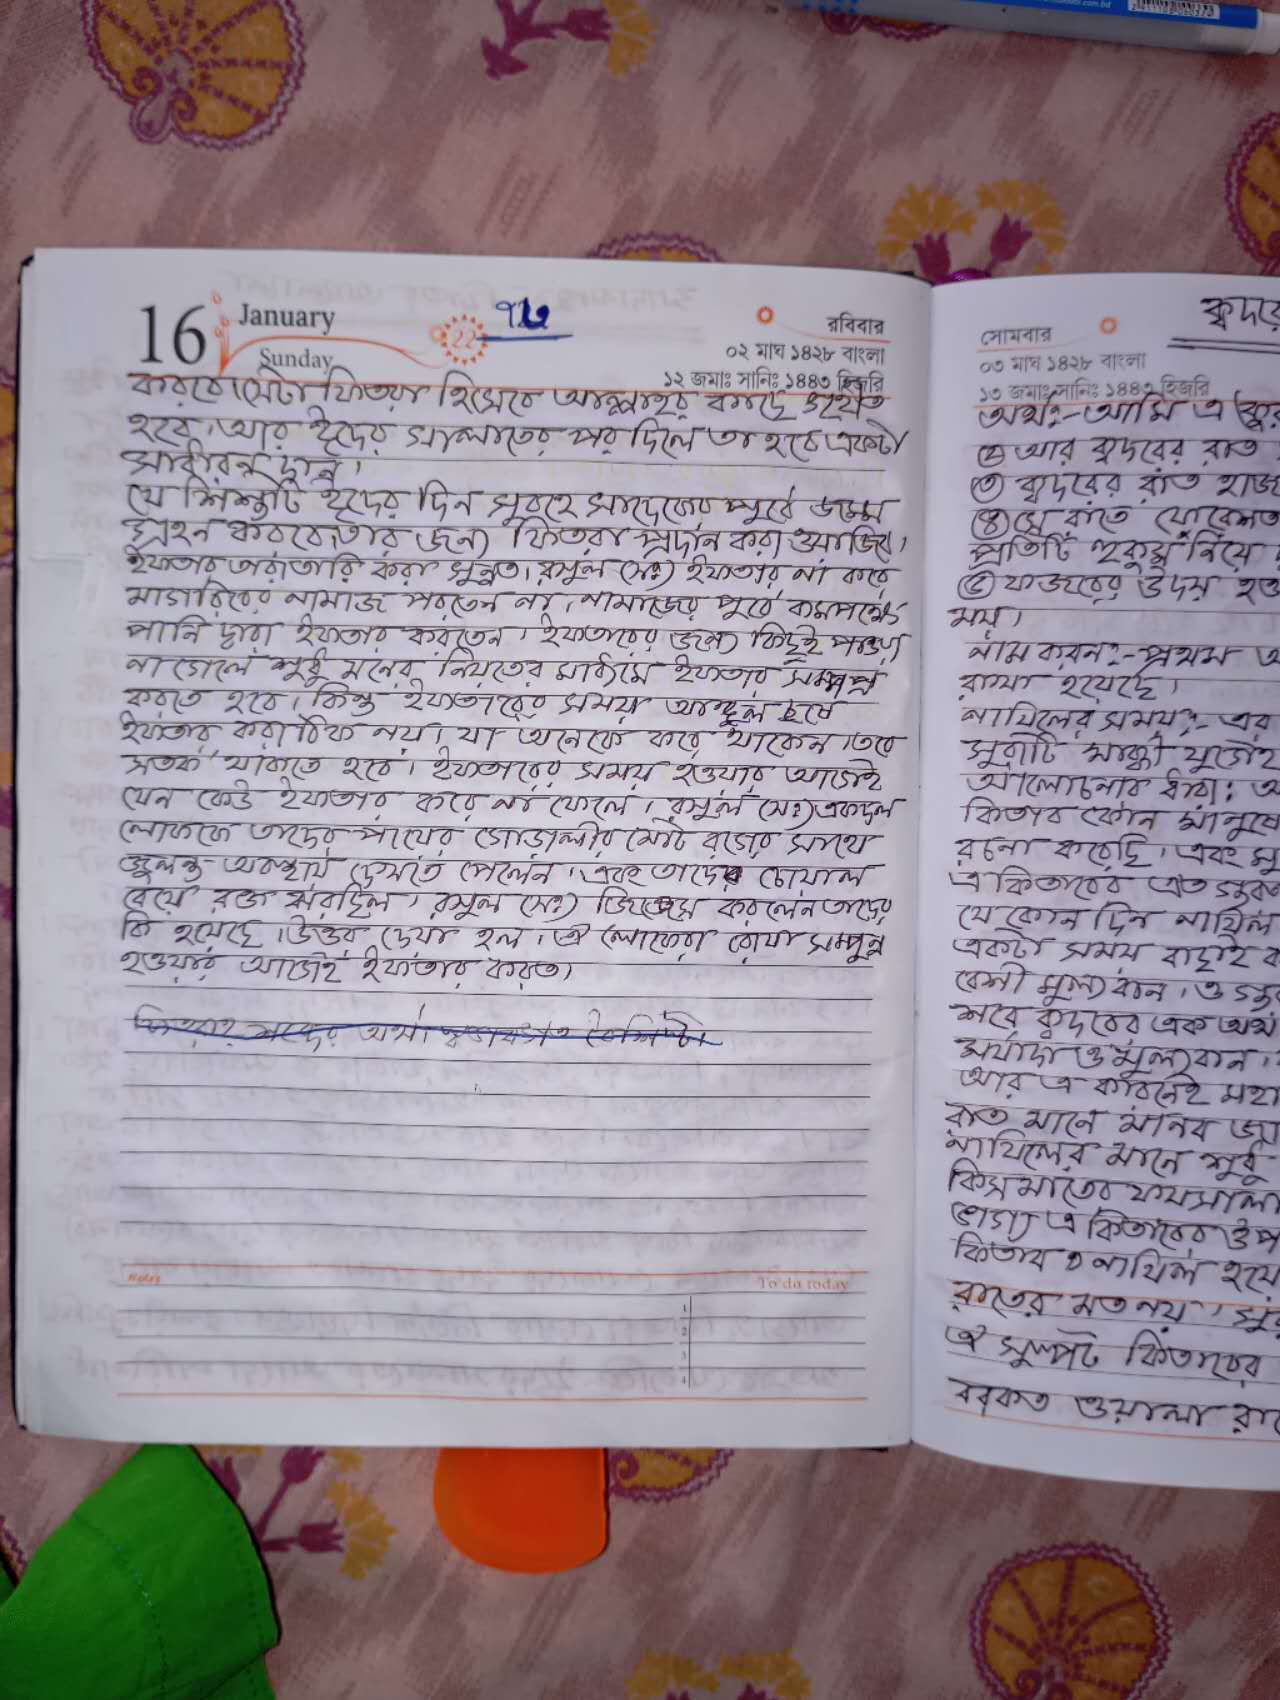 16 January
Sunday
22
৭৬
রবিবার
০২ মাঘ ১৪২৮ বাংলা
১২ জমাঃ সানিঃ ১৪৪৩ হিজরি
করবে। সেটা ফিতরা হিসেবে আল্লাহর কাছে গৃহীত
হবে। আর ঈদের সালাতের পর দিলে তা হবে একটা
সাধারন দান।
যে শিশুটি ঈদের দিন সুবহে সাদেকের পূর্বে জন্ম
গ্রহন করবে। তার জন্য ফিতরা প্রদান করা ওয়াজিব।
ইফতার তারাতারি করা সুন্নত। রসুল (সঃ) ইফতার না করে
মাগরিবের নামাজ পরতেন না। নামাজের পূর্বে কমপক্ষে
পানি দ্বারা ইফতার করতেন। ইফতারের জন্য কিছুই পাওয়া
না গেলে শুধু মনের নিয়তের মাধ্যমে ইফতার সম্পন্ন
করতে হবে। কিন্তু ইফতারের সময় আঙ্গুল চুষে
ইফতার করা ঠিক নয়। যা অনেকে করে থাকেন। তবে
সতর্ক থাকতে হবে। ইফতারের সময় হওয়ার আগেই
যেন কেউ ইফতার করে না ফেলে। রসুল (সঃ) একদল
লোককে তাদের পায়ের গোড়ালীর মোট রগের সাথে
ঝুলন্ত অবস্থায় দেখতে পেলেন। এবং তাদের চোয়াল
বেয়ে রক্ত ঝরছিল। রসুল (সঃ) জিজ্ঞেস করলেন তাদের
কি হয়েছে। উত্তর দেয়া হল। ঐ লোকেরা রোযা সম্পূন্ন
হওয়ার আগেই ইফতার করত।
Notes
To do today
1
2
3
4
সোমবার
০৩ মাঘ ১৪২৮ বাংলা
১৩ জমাঃ সানিঃ ১৪৪৩ হিজরি
অর্থঃ- আমি এ
(২) আর ক্বদরের রাত
(৩) ক্বদরের রাত হাজ
(৪) সে রাতে
প্রতিটি হুকুম নিয়ে
(৫) ফজরের উদয় হও
ময়।
নাম করনঃ- প্রথম
রাখা হয়েছে।
নাযিলের সময়ঃ- এর
সুরাটি মাক্কী যুগেই
আলোচনার ধারা:
কিতাব কোন মানুষে
রচনা করেছি। এবং সু
এ কিতাবের এত
যে কোন দিন নাযিল
একটা সময় বাছাই ক
বেশী মূল্যবান। ও
শবে ক্বদরের এক অর্থ
মর্যাদা ও মূল্যবান।
আর এ কারনেই মহা
রাত মানে মানব জা
নাযিলের মানে শুধু
কিসমাতের ফায়সালা
ভাগ্য এ কিতাবের উপ
কিতাব ও নাযিল হয়ে
রাতের মত নয়।
ঐ সুস্পষ্ট কিতাবের
বরকত ওয়ালা রা